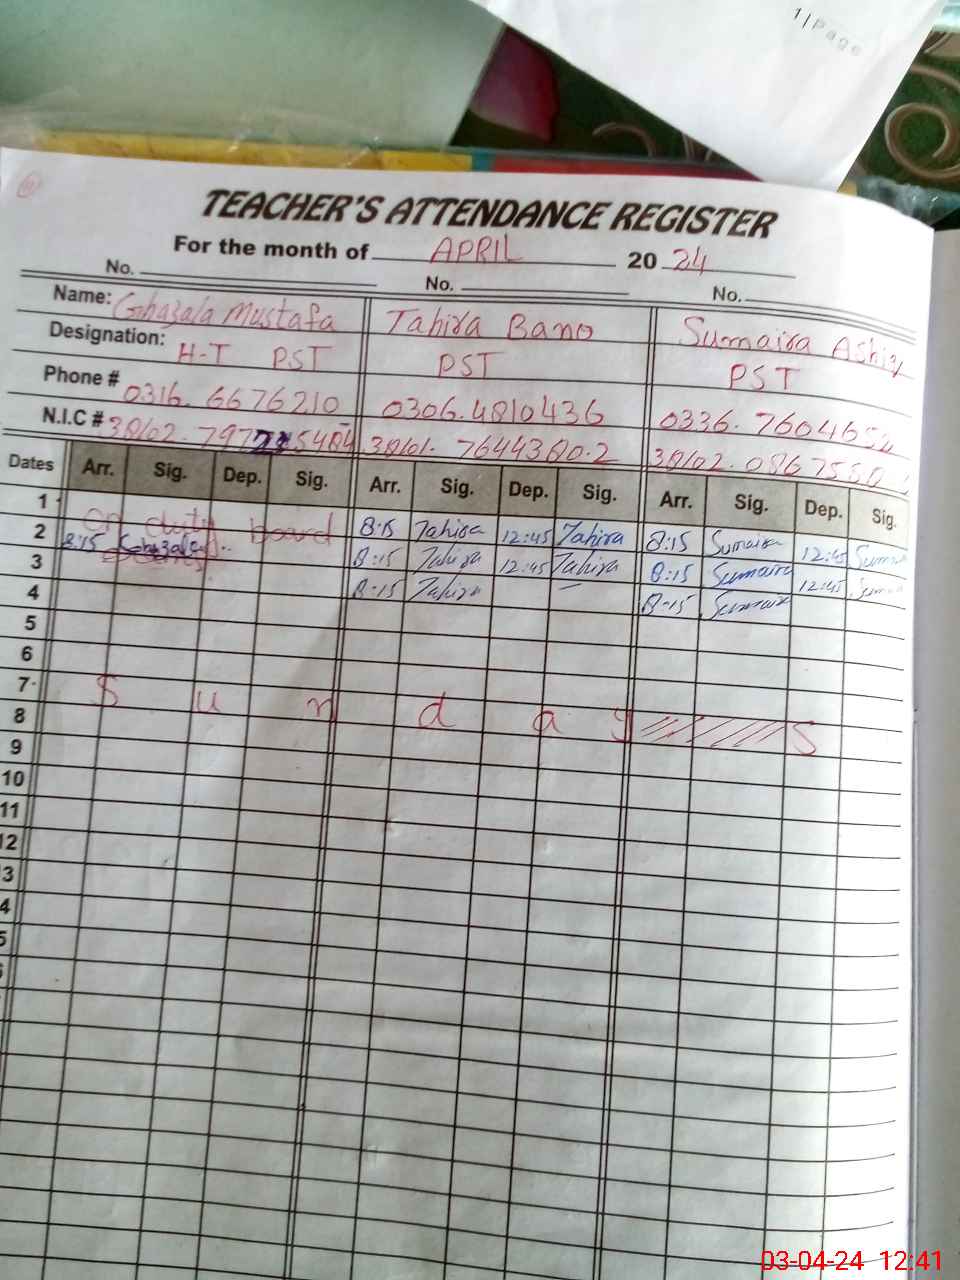 1 | Page
TEACHER'S ATTENDANCE REGISTER
For the month of APRIL 2024
No. No. No.
Name: Ghazala Mustafa Tahira Bano Sumaira Ashiq
Designation: H-T PST PST PST
Phone # 0316. 6676210 0306.4810436 0336. 76046
N.I.C # 38102. 797 5484 38101. 7644380.2 38102. 0867550
Dates Arr. Sig. Dep. Sig. Arr. Sig. Dep. Sig. Arr. Sig. Dep. Sig.
1 on duty board 8:15 Tahira 12:45 Tahira 8:15 Sumaira 12:45 Sumaira
2 8:15 Ghazala 8:15 Tahira 12:45 Tahira 8:15 Sumaira 12:45
3 8:15 Tahira 8:15 Sumaira
4
5
6
7 S u n d a y s
8
9
10
11
12
3
4
5
03-04-24 12:41